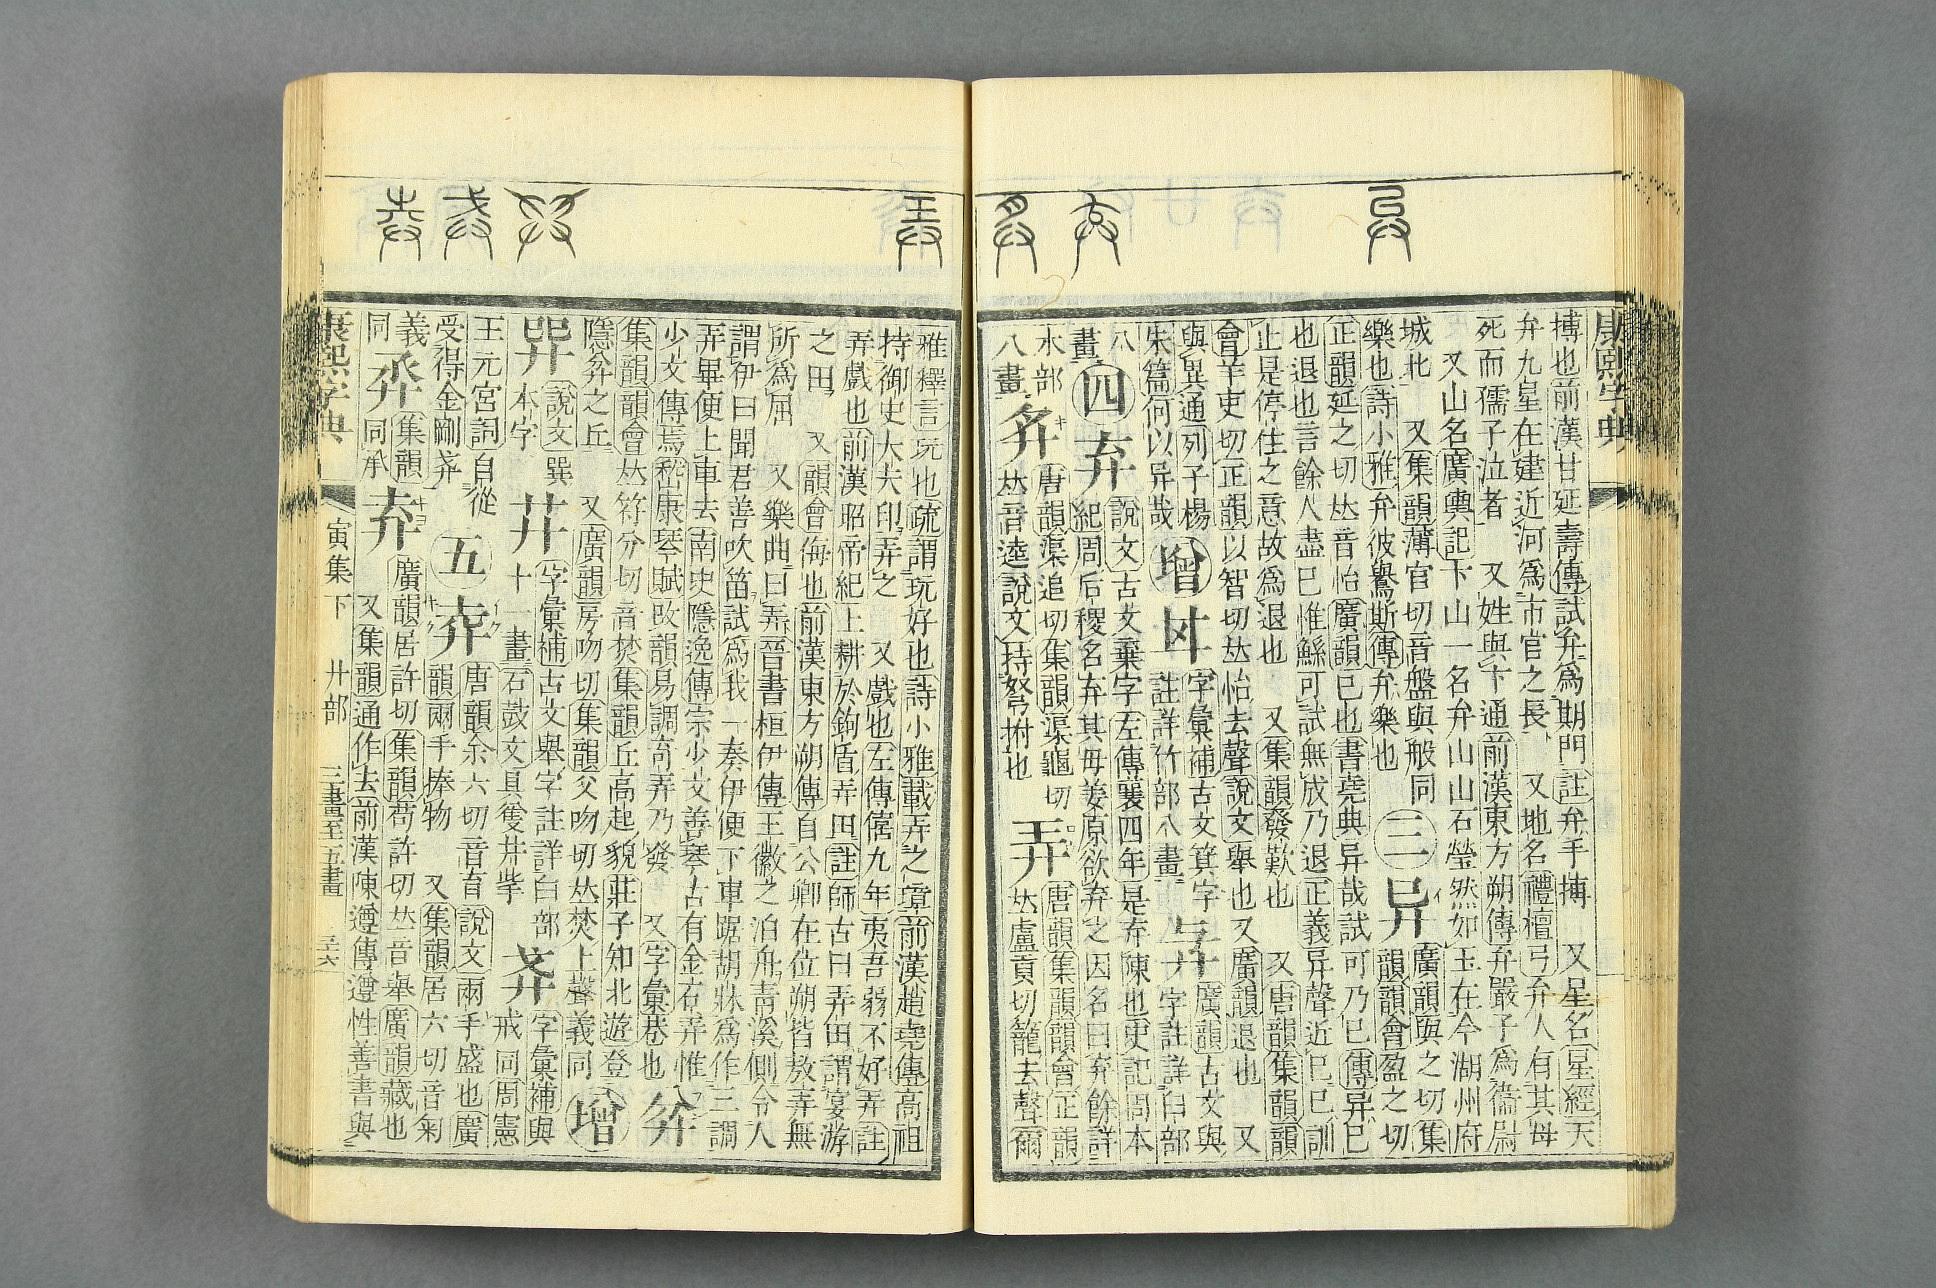 康熙字典
搏也前漢甘延壽傳試弁爲期門註弁手搏　又星名星經天
弁九星在建近河爲市官之長　又地名禮檀弓弁人有其母
死而孺子泣者　又姓與卞通前漢東方朔傳弁嚴子爲衞尉
又山名廣輿記卞山一名弁山山石瑩然如玉在今湖州府
城北　又集韻薄官切音盤與般同
樂也詩小雅弁彼鸒斯傳弁樂也
三
异
廣韻與之切集
韻韻會盈之切
正韻延之切𠀤音怡廣韻已也書堯典异哉試可乃已傳异已
也退也言餘人盡已惟鯀可試無成乃退正義异聲近已已訓
止是停住之意故爲退也　又集韻發歎也　又唐韻集韻韻
會羊吏切正韻以智切𠀤怡去聲說文舉也又廣韻退也　又
與異通列子楊
朱篇何以异哉
增
字彙補古文箕字
註詳竹部八畫
廣韻古文與
字註詳臼部
八
畫
四
弃
說文古文棄字左傳襄四年是弃陳也史記周本
紀周后稷名弃其母姜原欲弃之因名曰弃餘詳
木部
八畫
唐韻渠追切集韻渠龜切
𠀤音逵說文持弩拊也
弄
唐韻集韻韻會正韻
𠀤盧貢切籠去聲爾
雅釋言玩也疏謂玩好也詩小雅載弄之璋前漢趙堯傳高祖
持御史大夫印弄之　又戲也左傳僖九年夷吾弱不好弄註
弄戲也前漢昭帝紀上耕於鉤盾弄田註師古曰弄田謂宴游
之田　又韻會侮也前漢東方朔傳自公卿在位朔皆敖弄無
所爲屈　又樂曲曰弄晉書桓伊傳王徽之泊舟靑溪側令人
謂伊曰聞君善吹笛試爲我一奏伊便下車踞胡牀爲作三調
弄畢便上車去南史隱逸傳宗少文善琴古有金石弄惟
少文傳焉嵆康琴賦改韻易調奇弄乃發　又字彙巷也
弅
集韻韻會𠀤符分切音焚集韻丘高起貌莊子知北遊登
隱弅之丘　又廣韻房吻切集韻父吻切𠀤焚上聲義同
增
說文巽
本字
字彙補古文舉字註詳臼部
十一畫石鼓文具獲廾孳
字彙補與
戒同周憲
王元宮詞自從
受得金剛
五
唐韻余六切音育說文兩手盛也廣
韻兩手捧物　又集韻居六切音匊
義
同
集韻
同承
弆
廣韻居許切集韻苟許切𠀤音舉廣韻藏也
又集韻通作去前漢陳遵傳遵性善書與
康熙字典
寅集下　廾部　三畫至五畫　三六